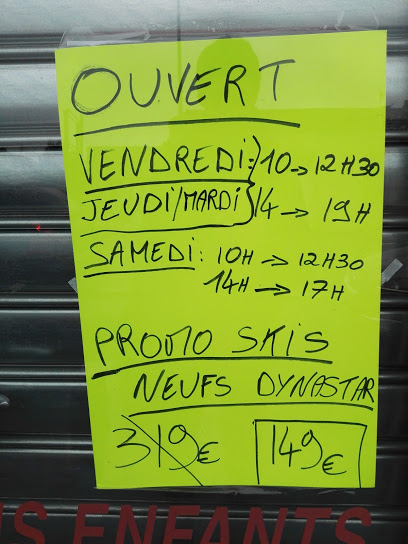 OUVERT
VENDREDI: } 10 → 12H30
JEUDI/MARDI } 14 → 19H
SAMEDI: 10H → 12H30
14H → 17H
PROMO SKIS
NEUFS DYNASTAR
319€ 149€
S ENFANTS